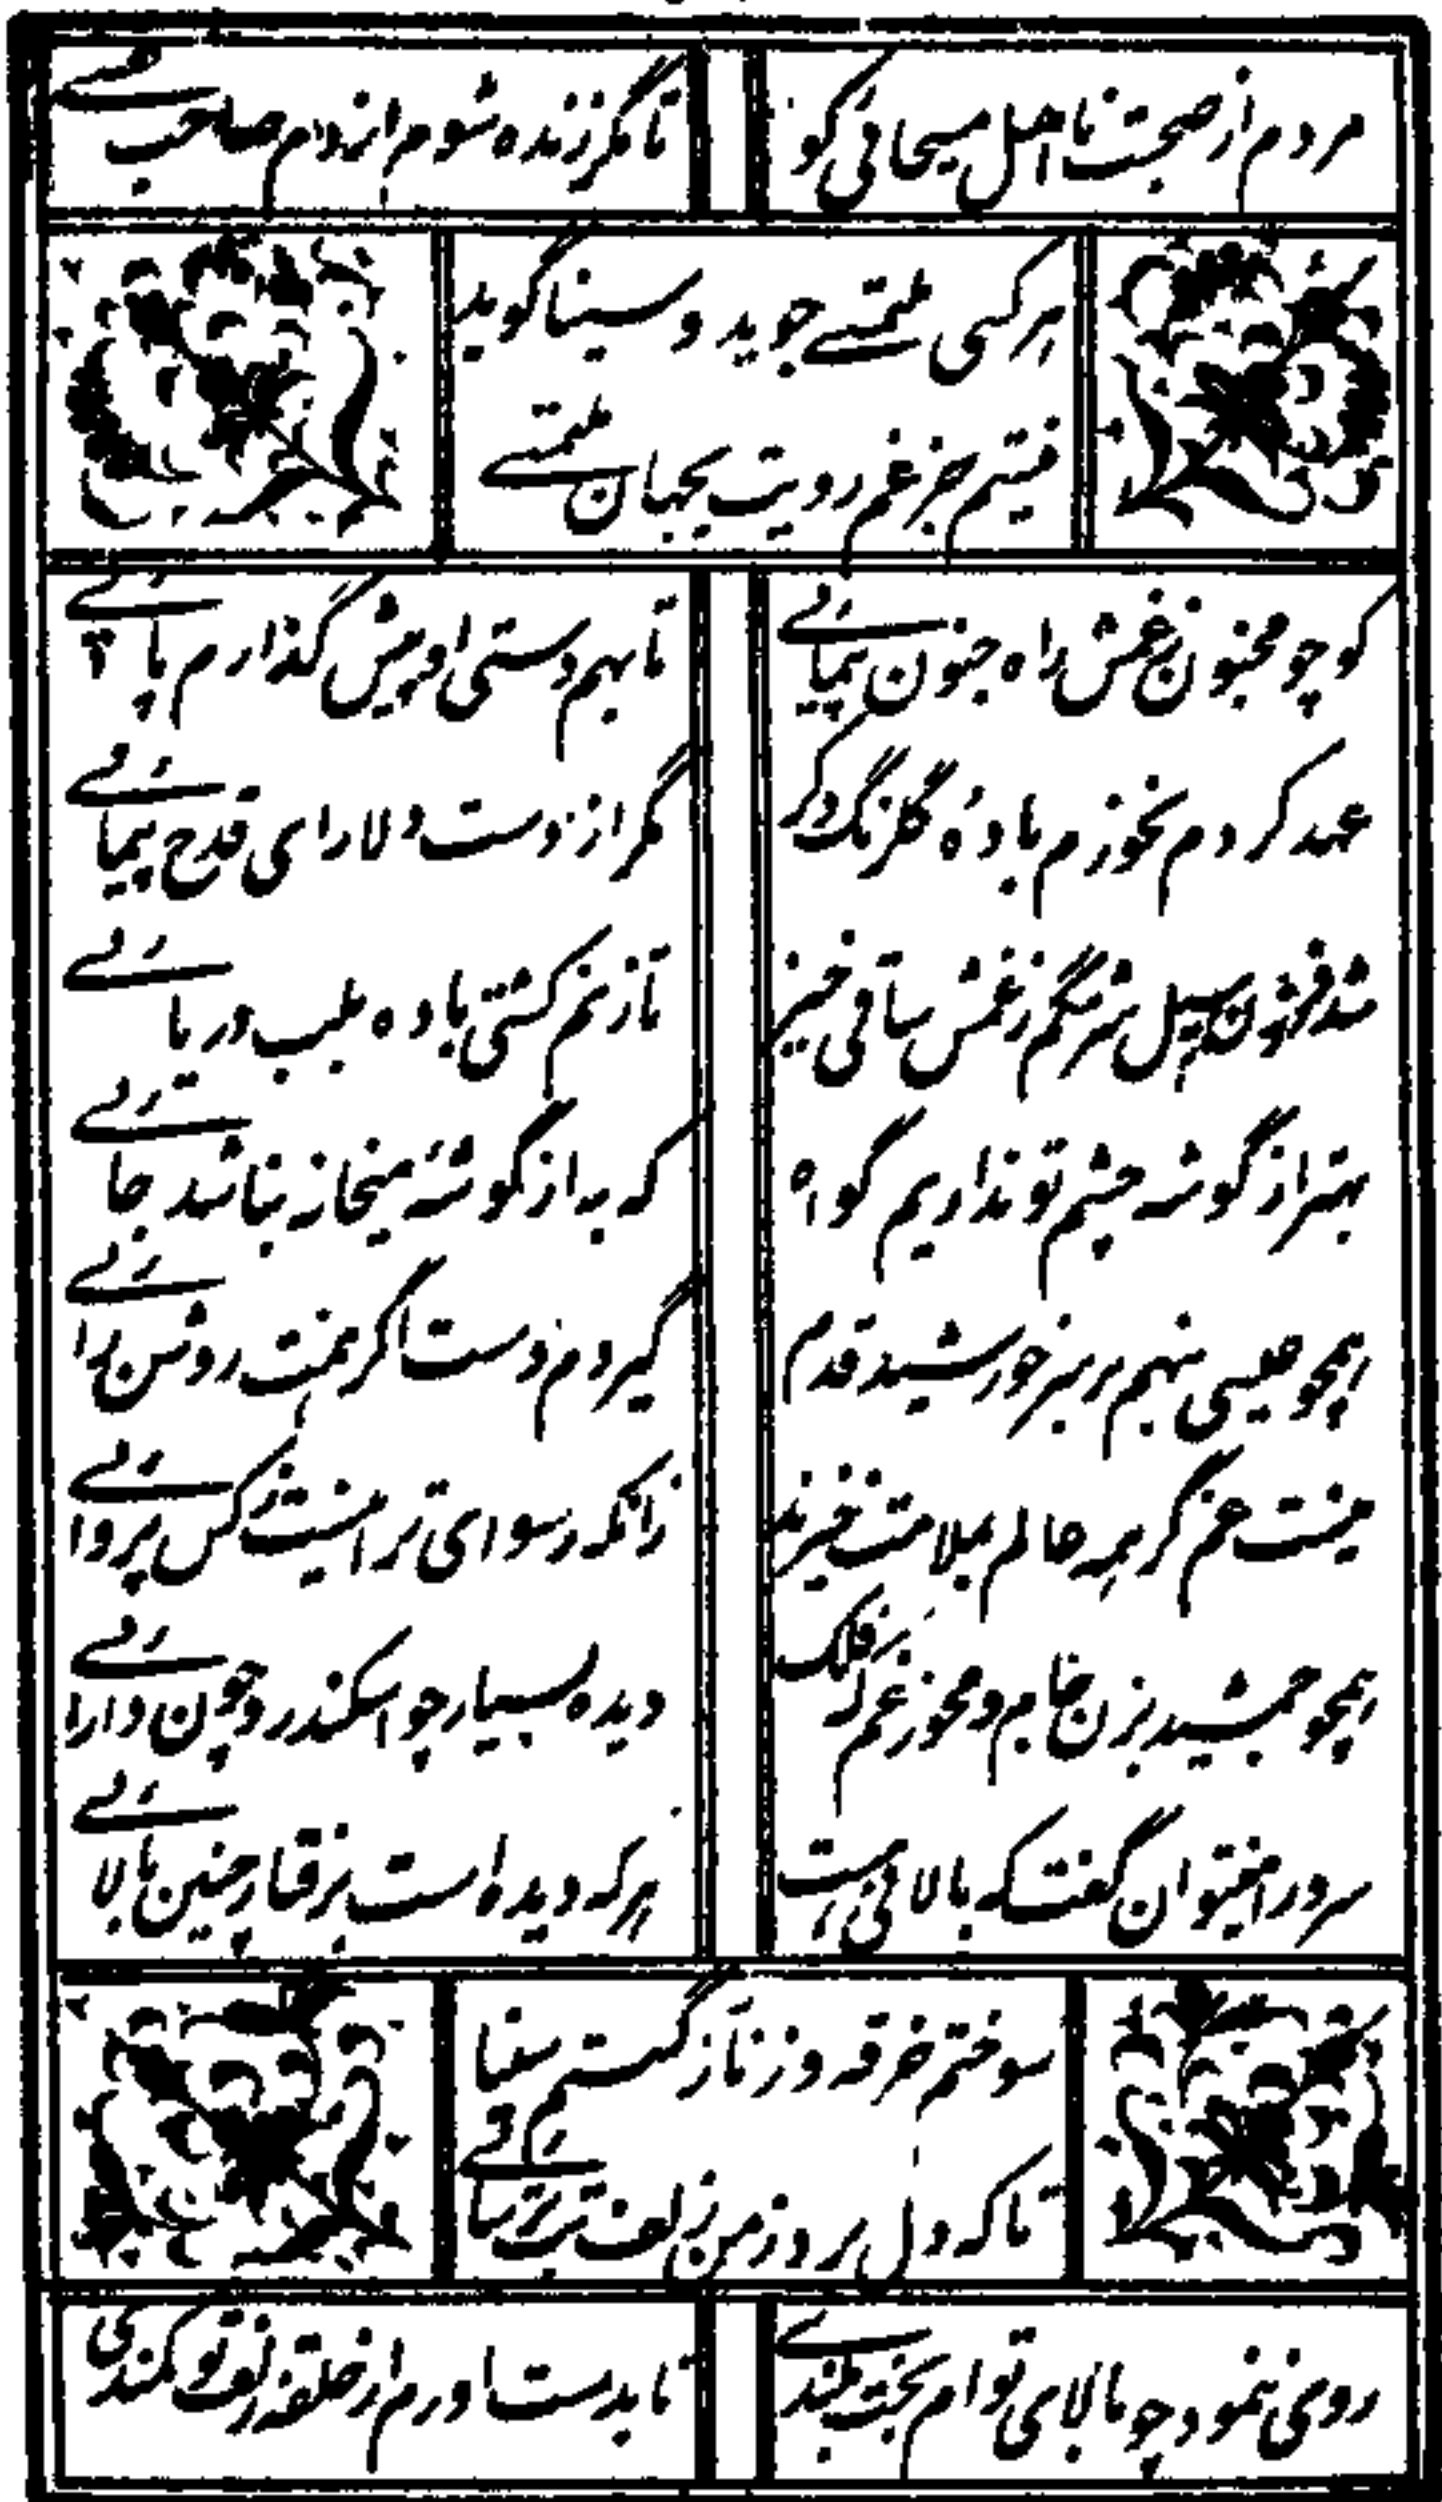 مردم از صحبت نااهل مسیحائی کو
تا مگر زنده شوم از دم صاحب
هر کسی ملتے جوید و سینا گوید
نیستم جز غم رویت بجهان ملتے
کو چو مجنون ز غمش راه جنون پیمائے
تا بهم دستی او پیش گذارم پائے
عهد کردم نخورم بادهٔ گلرنگ دگر
مگر از دست دلارای قدح پیمائے
شد فزون سیل سرشکم ز غمش ساقی خیز
تا زنم کشتی باده بلب دریائے
بهتر از گوشه چشم تو نداریم گواه
که به از گوشهٔ میخانه نباشد جائے
همچو عیسی نهم بر سر خورشید قدم
گیردم دست اگر همت روشن رائے
نیست غم گر همه عالم بملامت خیزند
زانکه رسوای ترا نیست ز کس پروائے
همچو جمشید بزن جام و مخور غم که فلک
دیده بسیار چو اسکندر و چون دارائے
سرو را نتوان گفت که بالائی هست
هر که دیده است برفتار چنین بالائے
سوختم خرقه و زنار گسستم سینا
تا که دل برد ز من زلف بت ترسائے
روی ننمود چو بالای توام بخت بلندے
تا بدست آورم از حلقه زلف تو کمندی